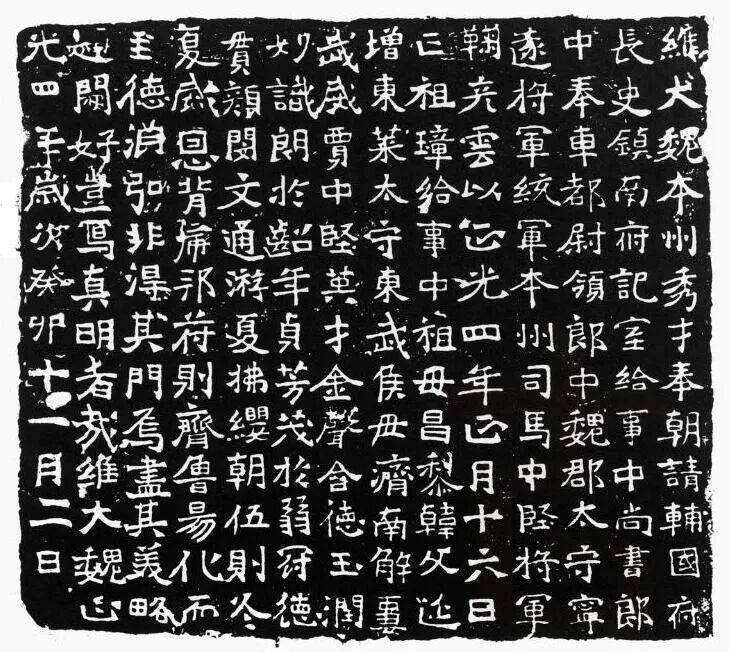 維大魏本州秀才奉朝請輔國府
長史鎮南府記室給事中尚書郎
中奉車都尉領郎中魏郡太守寧
遠將軍統軍本州司馬中堅將軍
鞠彥雲以正光四年正月十六日
亡祖璋給事中祖母昌黎韓父延
增東萊太守東武侯母濟南解妻
武威賈中堅英才金聲含德玉潤
妙識朗於齠年貞芳茂於弱冠德
貫顏閔文通游夏拂纓朝伍則冬
夏威恩背虎邦符則齊魯易化而
至德淵弘非淂其門焉盡其美略
題闕好豈寫真明者哉維大魏正
光四年歲次癸卯十一月二日